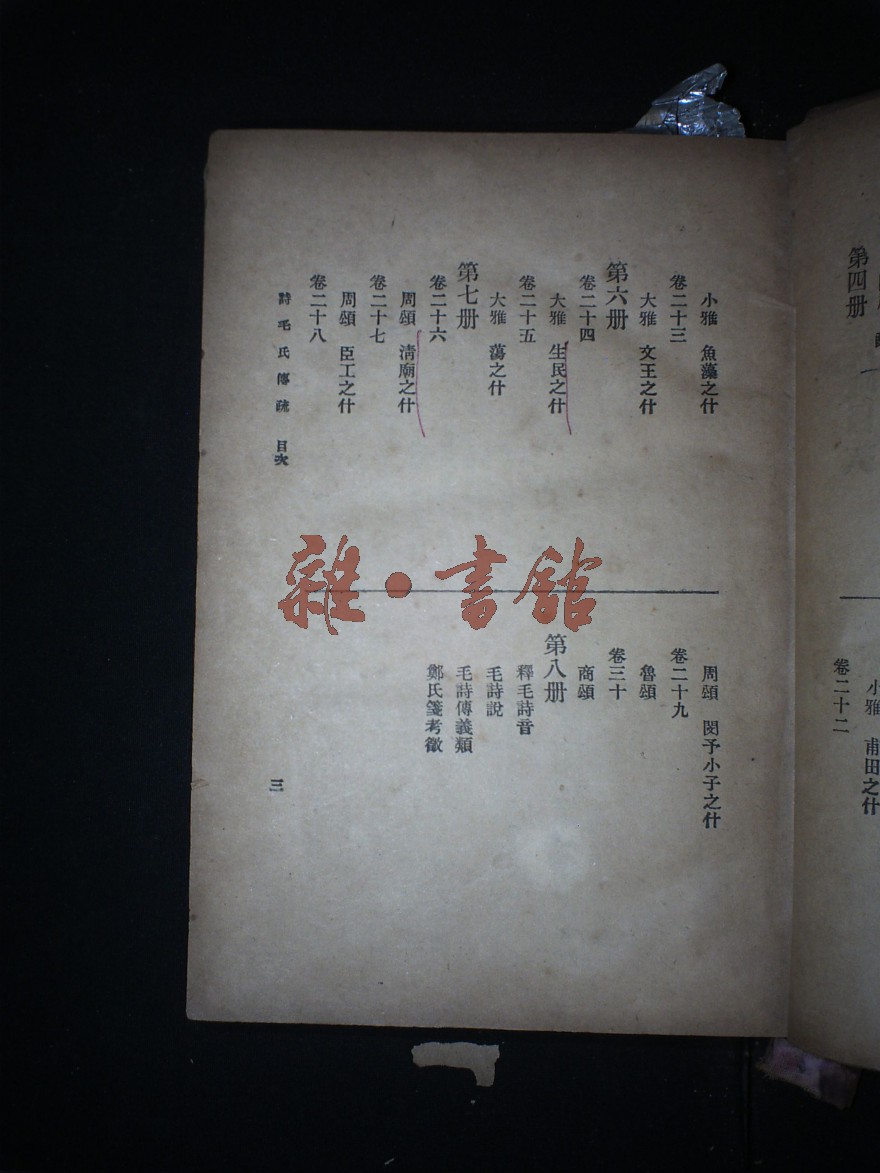 第四册
卷二十二
小雅 甫田之什
小雅 魚藻之什
卷二十三
大雅 文王之什
第六册
卷二十四
大雅 生民之什
卷二十五
大雅 蕩之什
第七册
卷二十六
周頌 清廟之什
卷二十七
周頌 臣工之什
卷二十八
周頌 閔予小子之什
卷二十九
魯頌
卷三十
商頌
第八册
釋毛詩音
毛詩說
毛詩傳義類
鄭氏箋考徵
詩毛氏傳疏 目次
三
雜·書館